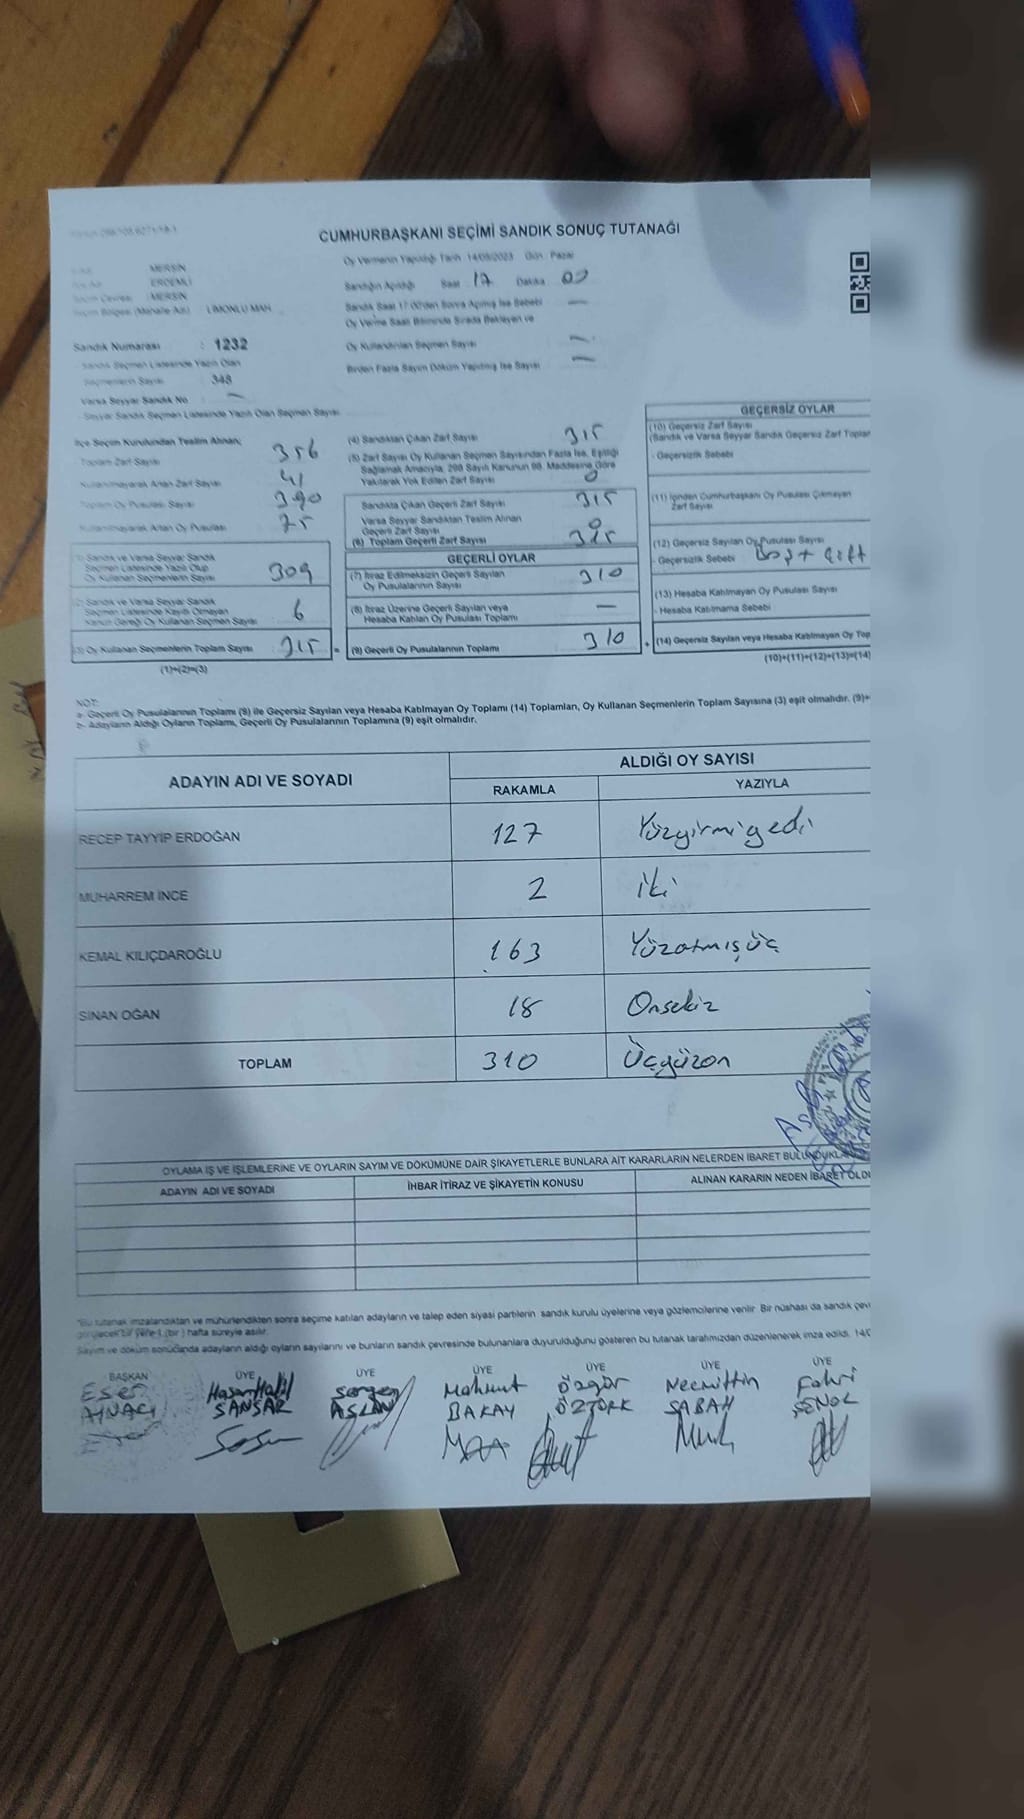 CUMHURBAŞKANI SEÇİMİ SANDIK SONUÇ TUTANAĞI
Oy Vermenin Yapıldığı Tarih 14/05/2023 Gün Pazar
MERSİN
ERDEMLİ
MERSİN
Seçim Bölgesi (Mahalle Adı) LİMONLU MAH.
Sandığın Açıldığı Saat 17 Dakika 00
Sandık Saat 17:00'den Sonra Açılmış İse Sebebi —
Oy Verme Saati Bitiminde Sırada Bekleyen ve
Oy Kullandırılan Seçmen Sayısı —
Birden Fazla Sayım Döküm Yapılmış İse Sayısı —
Sandık Numarası : 1232
- Sandık Seçmen Listesinde Yazılı Olan
Seçmenlerin Sayısı : 348
Varsa Seyyar Sandık No : —
- Seyyar Sandık Seçmen Listesinde Yazılı Olan Seçmen Sayısı
İlçe Seçim Kurulundan Teslim Alınan;
- Toplam Zarf Sayısı 356
- Kullanılmayarak Artan Zarf Sayısı 41
- Toplam Oy Pusulası Sayısı 390
- Kullanılmayarak Artan Oy Pusulası 75
(1) Sandık ve Varsa Seyyar Sandık
Seçmen Listesinde Yazılı Olup
Oy Kullanan Seçmenlerin Sayısı 309
(2) Sandık ve Varsa Seyyar Sandık
Seçmen Listesinde Kayıtlı Olmayan
Kanun Gereği Oy Kullanan Seçmen Sayısı 6
(3) Oy Kullanan Seçmenlerin Toplam Sayısı 315 =
(1)+(2)=(3)
(4) Sandıktan Çıkan Zarf Sayısı 315
(5) Zarf Sayısı Oy Kullanan Seçmen Sayısından Fazla İse, Eşitliği
Sağlamak Amacıyla, 298 Sayılı Kanunun 98. Maddesine Göre
Yakılarak Yok Edilen Zarf Sayısı 0
Sandıkta Çıkan Geçerli Zarf Sayısı 315
Varsa Seyyar Sandıktan Teslim Alınan
Geçerli Zarf Sayısı 0
(6) Toplam Geçerli Zarf Sayısı 315
GEÇERLİ OYLAR
(7) İtiraz Edilmeksizin Geçerli Sayılan
Oy Pusulalarının Sayısı 310
(8) İtiraz Üzerine Geçerli Sayılan veya
Hesaba Katılan Oy Pusulası Toplamı —
(9) Geçerli Oy Pusulalarının Toplamı 310 +
GEÇERSİZ OYLAR
(10) Geçersiz Zarf Sayısı
(Sandık ve Varsa Seyyar Sandık Geçersiz Zarf Toplam
- Geçersizlik Sebebi
(11) İçinden Cumhurbaşkanı Oy Pusulası Çıkmayan
Zarf Sayısı
(12) Geçersiz Sayılan Oy Pusulası Sayısı
- Geçersizlik Sebebi Boş + Çift
(13) Hesaba Katılmayan Oy Pusulası Sayısı
- Hesaba Katılmama Sebebi
(14) Geçersiz Sayılan veya Hesaba Katılmayan Oy Top
(10)+(11)+(12)+(13)=(14)
NOT:
a- Geçerli Oy Pusulalarının Toplamı (9) ile Geçersiz Sayılan veya Hesaba Katılmayan Oy Toplamı (14) Toplamları, Oy Kullanan Seçmenlerin Toplam Sayısına (3) eşit olmalıdır. (9)+
b- Adayların Aldığı Oyların Toplamı, Geçerli Oy Pusulalarının Toplamına (9) eşit olmalıdır.
ADAYIN ADI VE SOYADI
ALDIĞI OY SAYISI
RAKAMLA YAZIYLA
RECEP TAYYİP ERDOĞAN 127 Yüzyirmiyedi
MUHARREM İNCE 2 iki
KEMAL KILIÇDAROĞLU 163 Yüzatmışüç
SİNAN OĞAN 18 Onsekiz
TOPLAM 310 Üçyüzon
OYLAMA İŞ VE İŞLEMLERİNE VE OYLARIN SAYIM VE DÖKÜMÜNE DAİR ŞİKAYETLERLE BUNLARA AİT KARARLARIN NELERDEN İBARET BULUNDUKLA
ADAYIN ADI VE SOYADI İHBAR İTİRAZ VE ŞİKAYETİN KONUSU ALINAN KARARIN NEDEN İBARET OLDU
"Bu tutanak imzalandıktan ve mühürlendikten sonra seçime katılan adayların ve talep eden siyasi partilerin sandık kurulu üyelerine veya gözlemcilerine verilir. Bir nüshası da sandık çev
görülecek bir yere 1 (bir) hafta süreyle asılır.
Sayım ve döküm sonucunda adayların aldığı oyların sayılarını ve bunların sandık çevresinde bulunanlara duyurulduğunu gösteren bu tutanak tarafımızdan düzenlenerek imza edildi. 14/0
BAŞKAN ÜYE ÜYE ÜYE ÜYE ÜYE ÜYE
Eser Hasan Halil Sergen Mahmut Özgür Necmittin Fahri
AYNACI SANSAR ASLAN BAKAY ÖZTÜRK SABAH ŞENOL